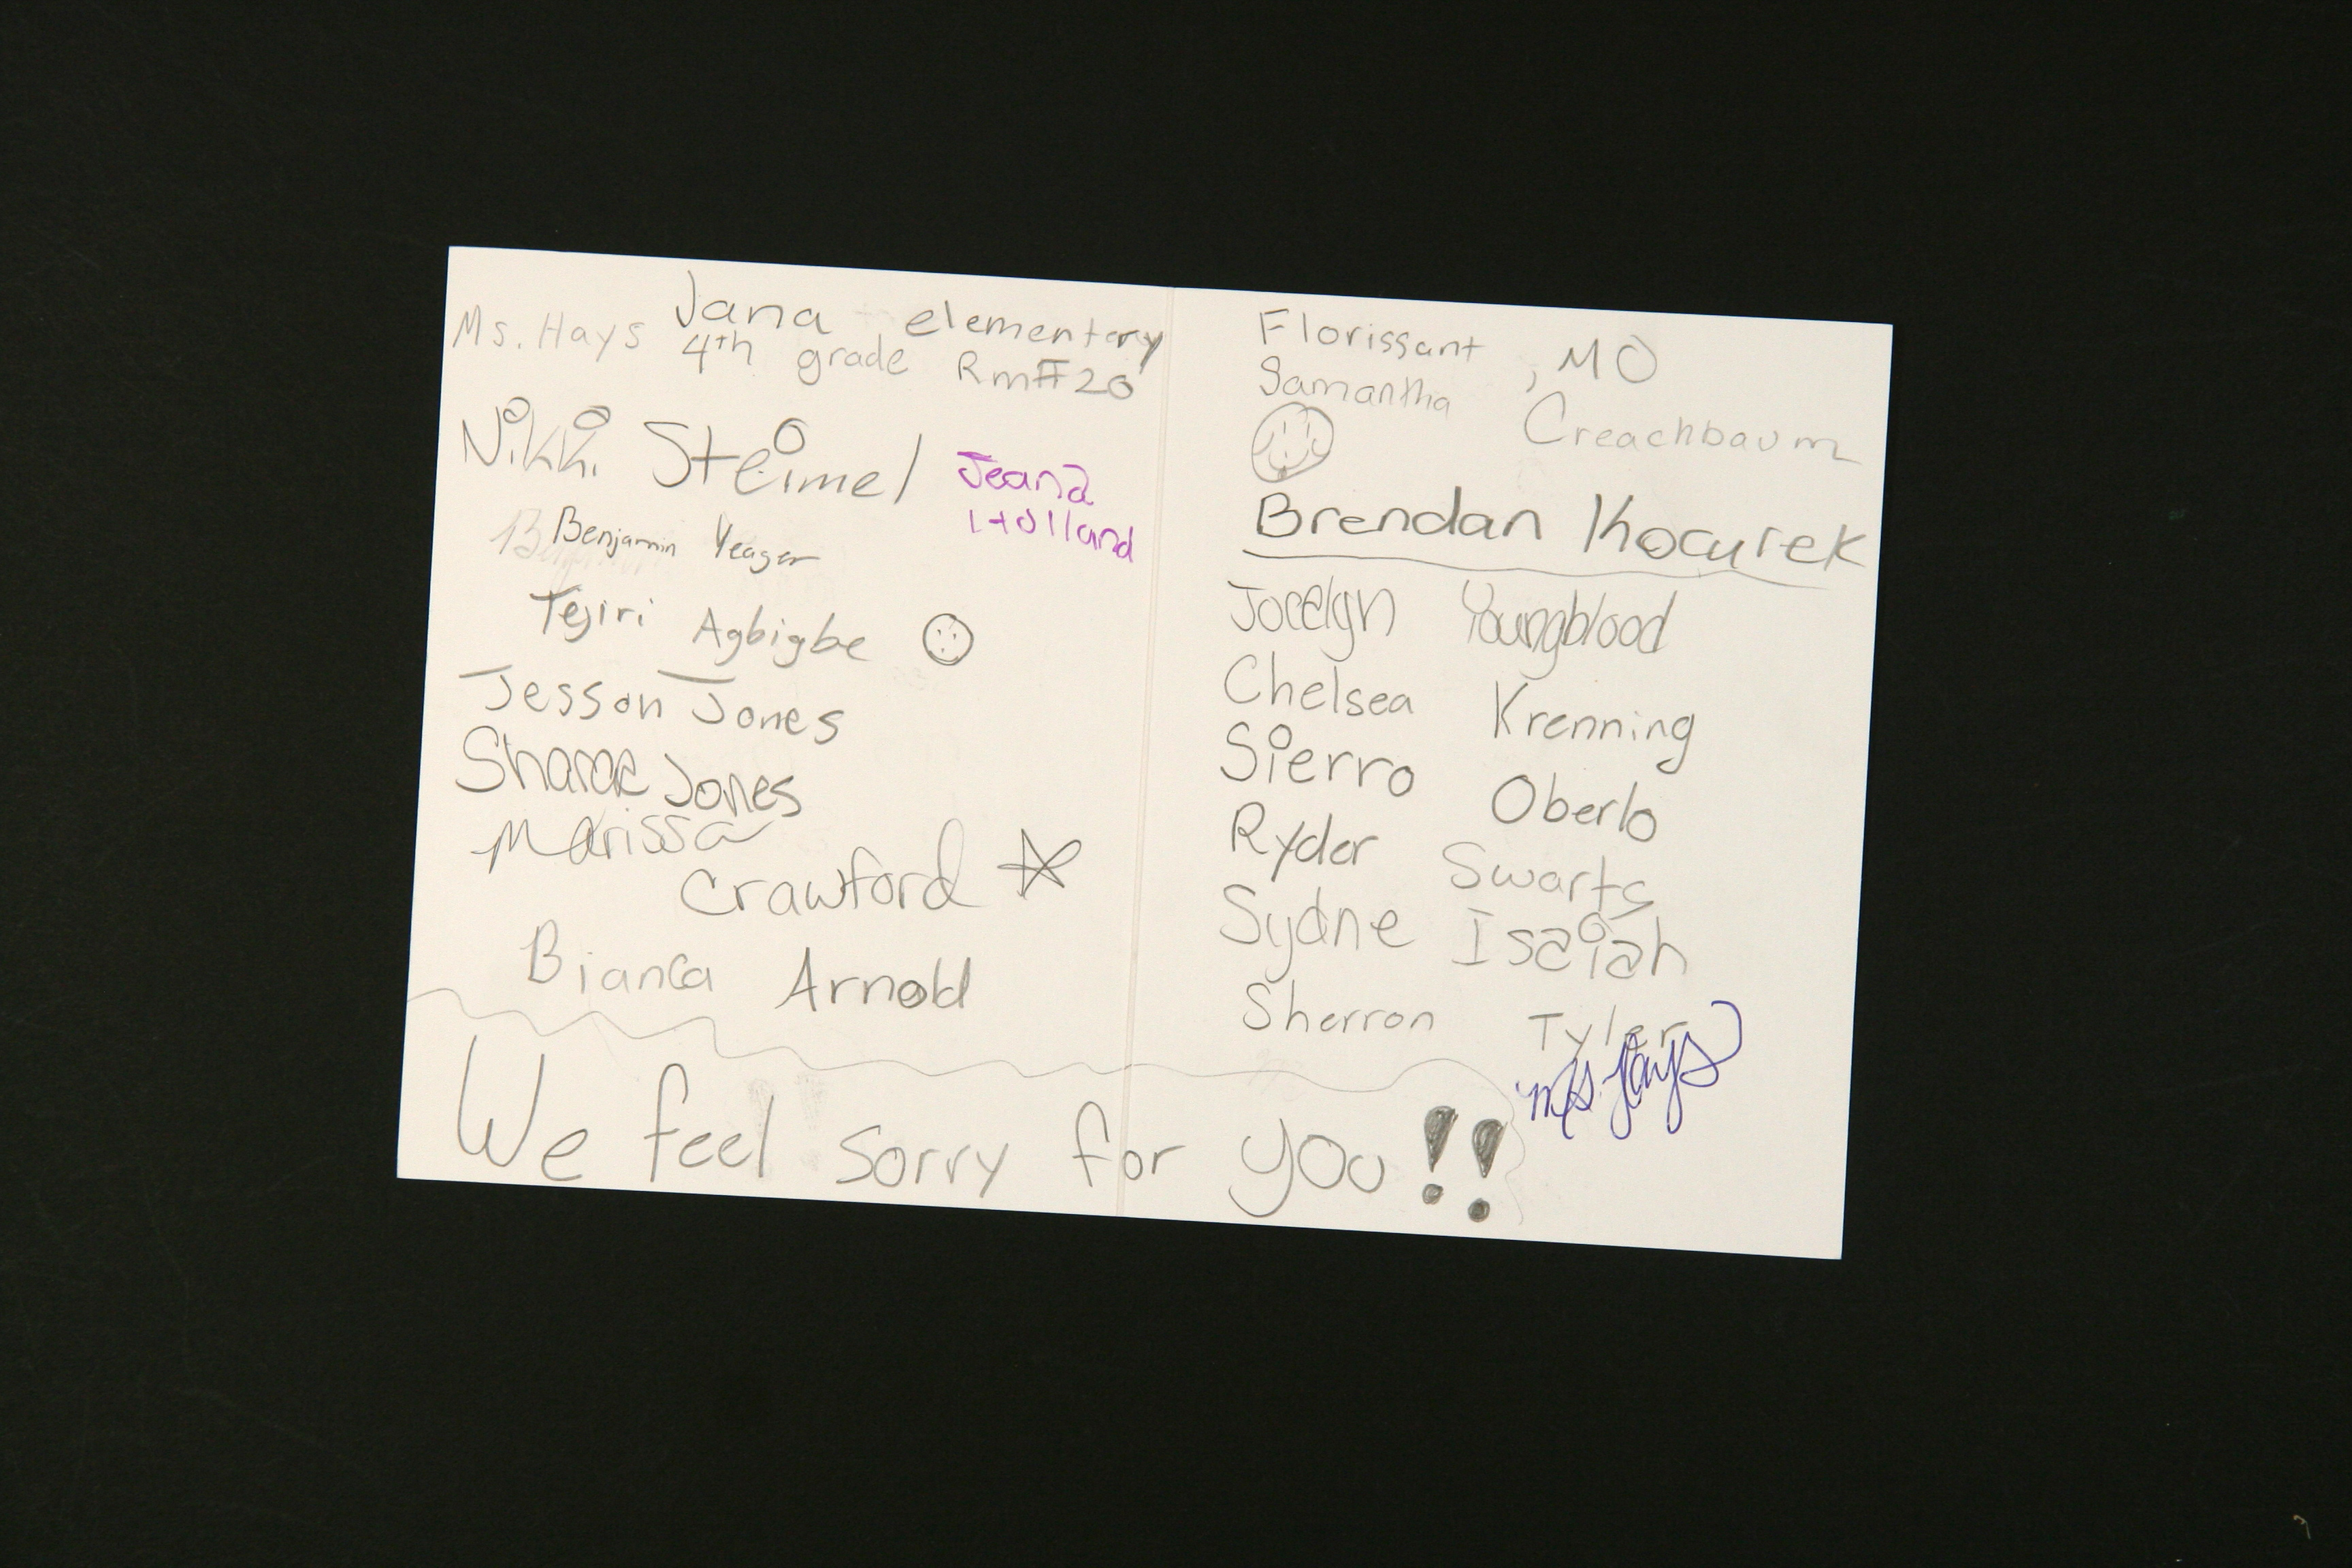 Ms. Hays Jana elementery
4th grade Rm#20
Nikki Steimel
Jeana
Holland
Benjamin Yeager
Tejiri Agbigbe
Jesson Jones
Jones
Marissa
Crawford
Bianca Arnold
Florissant, MO
Samantha Creachbaum
Brendan Kocurek
Jocelyn Youngblood
Chelsea Krenning
Sierro Oberlo
Ryder Swarts
Sydne Isaiah
Sherron Tyler
Ms. Hays
We feel sorry for you!!